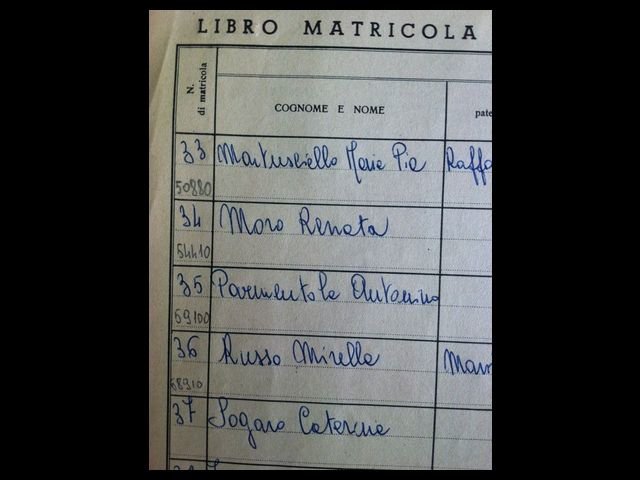 LIBRO MATRICOLA
N.
di matricola
COGNOME E NOME
pate
33 Martusciello Maria Pia Raffa
50880
34 Moro Renata
54410
35 Parmentola Antonino
59100
36 Russo Mirella
68910
37 Sogaro Caterina